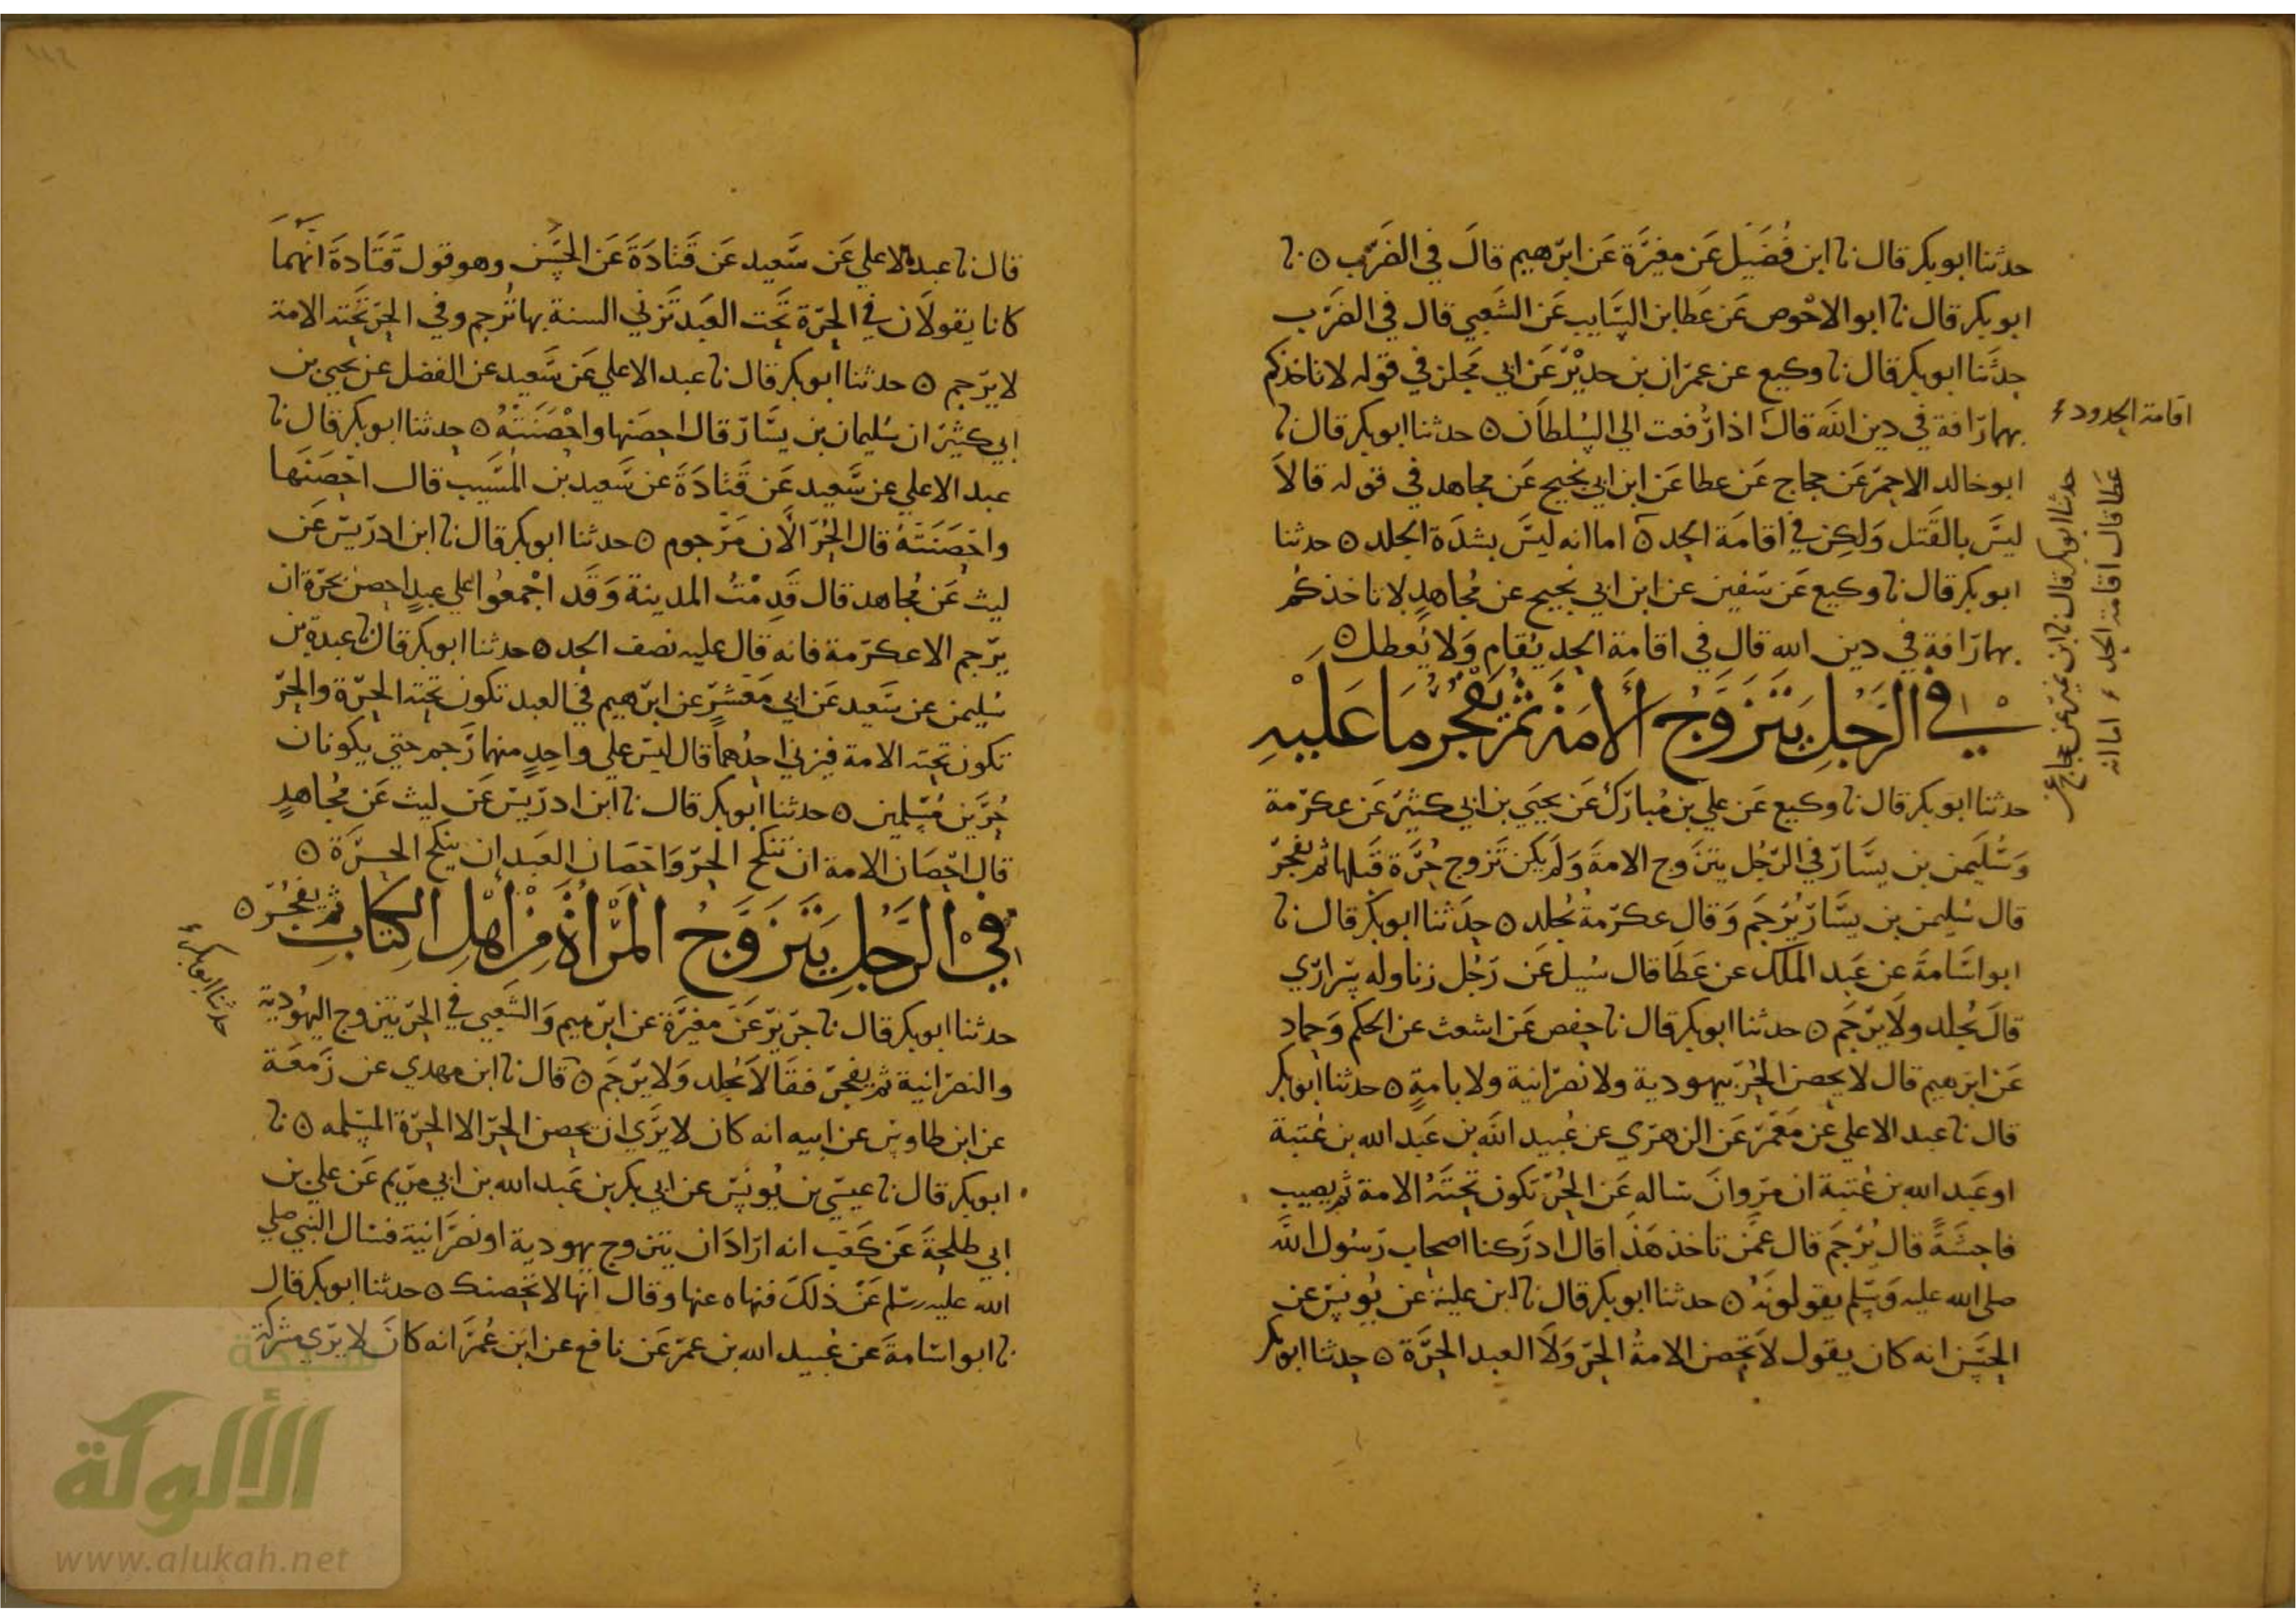 حدثنا ابو بكر قال نا ابن فُضَيل عَن مغيَرة عَن ابرهيم قالَ في الضَرب ٥ نا
ابو بكر قال نا ابو الاحْوص عَن عَطا بن السَّايب عَن الشَعبي قال في الضَرب
حدثَنا ابو بكر قال نا وكيع عن عمرَان بن حديْر عَن ابي مجلز في قوله لا تاخذكم
بهما رَافة في دين الله قالَ اذا رُفعت الي السُلطاَن ٥ حدثنا ابو بكر قال نا
اقامة الحدود
ابو خالد الاحمر عَن حجاج عَن عطا عَن ابن ابي نجيح عَن مجاهد في قوله قالاَ
ليسَ بالقَتل وَلكِن في اقامَة الحد ٥ اما انه ليسَ بشدَة الجلد ٥ حدثنا
حدثنا ابو بكر قال نا ابن نمير عن حجاج عن
عَطا قال اقامة الحد اما انه
ابو بكر قال نا وكيع عَن سَفين عن ابن ابي نجيح عن مُجاهدٍ لا تاخذكُم
بهما رَافة في دين الله قال في اقامة الحد يُقام وَلا يُعطل ٥
في الرَجُلِ يَتَزَوَّجُ الأَمَة ثُم يَفْجُر مَا عَلَيْهِ
حدثنا ابو بكر قال نا وكيع عَن علي بن مُبارَك عَن يحيَي بن ابي كثيَر عَن عكرَمة
وَسُليمن بن يسَار في الرَجُل يتزَوج الامةَ وَلَم يكن تَزوج حُرَّة قَبلها ثم يفجرَ
قال سُليمن بن يسَار يُرْجَم وَقال عكرَمة يُجلد ٥ حدَثنا ابو بكر قال نا
ابو اسَامةَ عن عَبد الملك عن عَطَا قال سُيل عَن رَجُل زنا وله سَراري
قالَ يُجلد ولاَ يرجَم ٥ حدثنا ابو بكر قال نا حفص عَن اشعث عن الحكم وَحماد
عَن ابرهيم قال لا يحصن الحُرّ بيهودية ولا نصرَانية ولا بامةٍ ٥ حدثنا ابو بكر
قال نا عبد الاعلي عَن مَعْمَر عَن الزهرَي عن عُبيد الله بن عَبد الله بن عُتبة
او عَبد الله بن عُتبة ان مرَوانَ سَاله عَن الحُرّ تكون تحتَهُ الامة ثم يصيب
فاحشَةً قال يُرْجَم قال عمَن تاخذ هَذا قال ادرَكنا اصحاب رَسُول الله
صلي الله عليه وَسَلم يقولونَهُ ٥ حدثنا ابو بكر قال نا ابن عليةَ عن يُونسَ عن
الحسَن انه كان يقول لاَ تحصن الامةُ الحرّ وَلاَ العبد الحرَّة ٥ حدثنا ابو بكر
قال نا عبد الاعلي عَن سَّعيد عَن قَتادَةَ عَن الحَسَن وهو قول قَتَادةَ انهما
كانا يقولاَن في الحرّة تَحت العَبد تَزني السنة بها تُرجم وفي الحرّ تَحته الامة
لا يرَجم ٥ حدثنا ابو بكر قال نا عبد الاعلي عَن سَّعيد عن الفضل عن يحيي بن
ابي كثيَر ان سُليمان بن يسَّارَ قال احصَنها واحْصَنَتْهُ ٥ حدثنا ابو بكر قال نا
عبد الاعلي عن سَّعيد عَن قَتادَةَ عن سَّعيد بن المسَيب قال احْصَنَها
واحصَنَتهُ قال الحُرّ الاَن مَرَجوم ٥ حدثنا ابو بكر قال نا ابن ادرَيسَ عَن
ليث عَن مُجاهد قال قَدِمْتُ المدينة وَقَد اجْمعُوا علي عبدٍ احصن بحرَة ان
يرَجم الا عكرَمة فانه قال عليه نصف الحد ٥ حدثنا ابو بكر قال نا عبدة بن
سُليمن عن سَعيد عَن ابي مَعشرٍ عن ابرَهيم في العبد تكون تحته الحرّة والحرّ
تكون تحته الامة فيزني احدُهما قال ليسَ علي واحِدٍ منهما رَجم حتي يكونان
حُرَّين مُسلمين ٥ حدثنا ابو بكر قال نا ابن ادرَيسَ عَن ليث عَن مُجاهدٍ
قال احْصَان الامة ان تنكح الحرّ وَاحصَان العَبد ان ينكح الحرَّة ٥
في الرَّجُلِ يَتَزَوَّجُ المَرْأَةَ مِنْ أهْل الكِتَابِ ثم يفجُرَ ٥
حدثنا ابو بكر قال نا جرَيرَ عَن مغيرَة عن ابرَهيم وَالشَعبي في الحرّ يتزوج اليهُودية
والنصرَانية ثم يفجرَ فقَالاَ يُجلد وَلا يرَجَم ٥ قال نا ابن مهدي عن زَمعَة
حدثنا ابو بكر
عن ابن طاوس عن ابيه انه كان لا يرَي ان يحصن الحرّ الا الحرّة المسَلمه ٥ نا
ابو بكر قال نا عيسَي بن يُونسَ عن ابي بكر بن عَبد الله بن ابي مرَيم عَن علي بن
ابي طلحةَ عَن كَعب انه ارَادَ ان يتزوج يهودية او نصرَانية فسَال النَبي صلي
الله عليه وسَلم عَن ذلكَ فنهاه عنها وقال انها لا تحصنك ٥ حدثنا ابو بكر قال
نا ابو اسَامةَ عن عُبيد الله بن عمرَ عَن نافع عن ابَن عُمرَ انه كانَ لا يرَي مشركة
شبكة
الألوكة
www.alukah.net